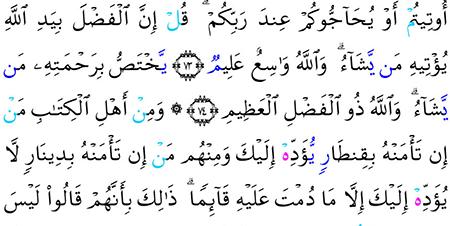 أُوتِيتُمْ أَوْ يُحَآجُّوكُمْ عِندَ رَبِّكُمْ ۗ قُلْ إِنَّ ٱلْفَضْلَ بِيَدِ ٱللَّهِ
يُؤْتِيهِ مَن يَّشَآءُ ۗ وَٱللَّهُ وَٰسِعٌ عَلِيمٌ ﴿٧٣﴾ يَّخْتَصُّ بِرَحْمَتِهِۦ مَن
يَّشَآءُ ۗ وَٱللَّهُ ذُو ٱلْفَضْلِ ٱلْعَظِيمِ ﴿٧٤﴾ ۞ وَمِنْ أَهْلِ ٱلْكِتَٰبِ مَنْ
إِن تَأْمَنْهُ بِقِنطَارٍ يُّؤَدِّهِۦٓ إِلَيْكَ وَمِنْهُم مَّنْ إِن تَأْمَنْهُ بِدِينَارٍ لَّا
يُؤَدِّهِۦٓ إِلَيْكَ إِلَّا مَا دُمْتَ عَلَيْهِ قَآئِمًا ۗ ذَٰلِكَ بِأَنَّهُمْ قَالُوا۟ لَيْسَ